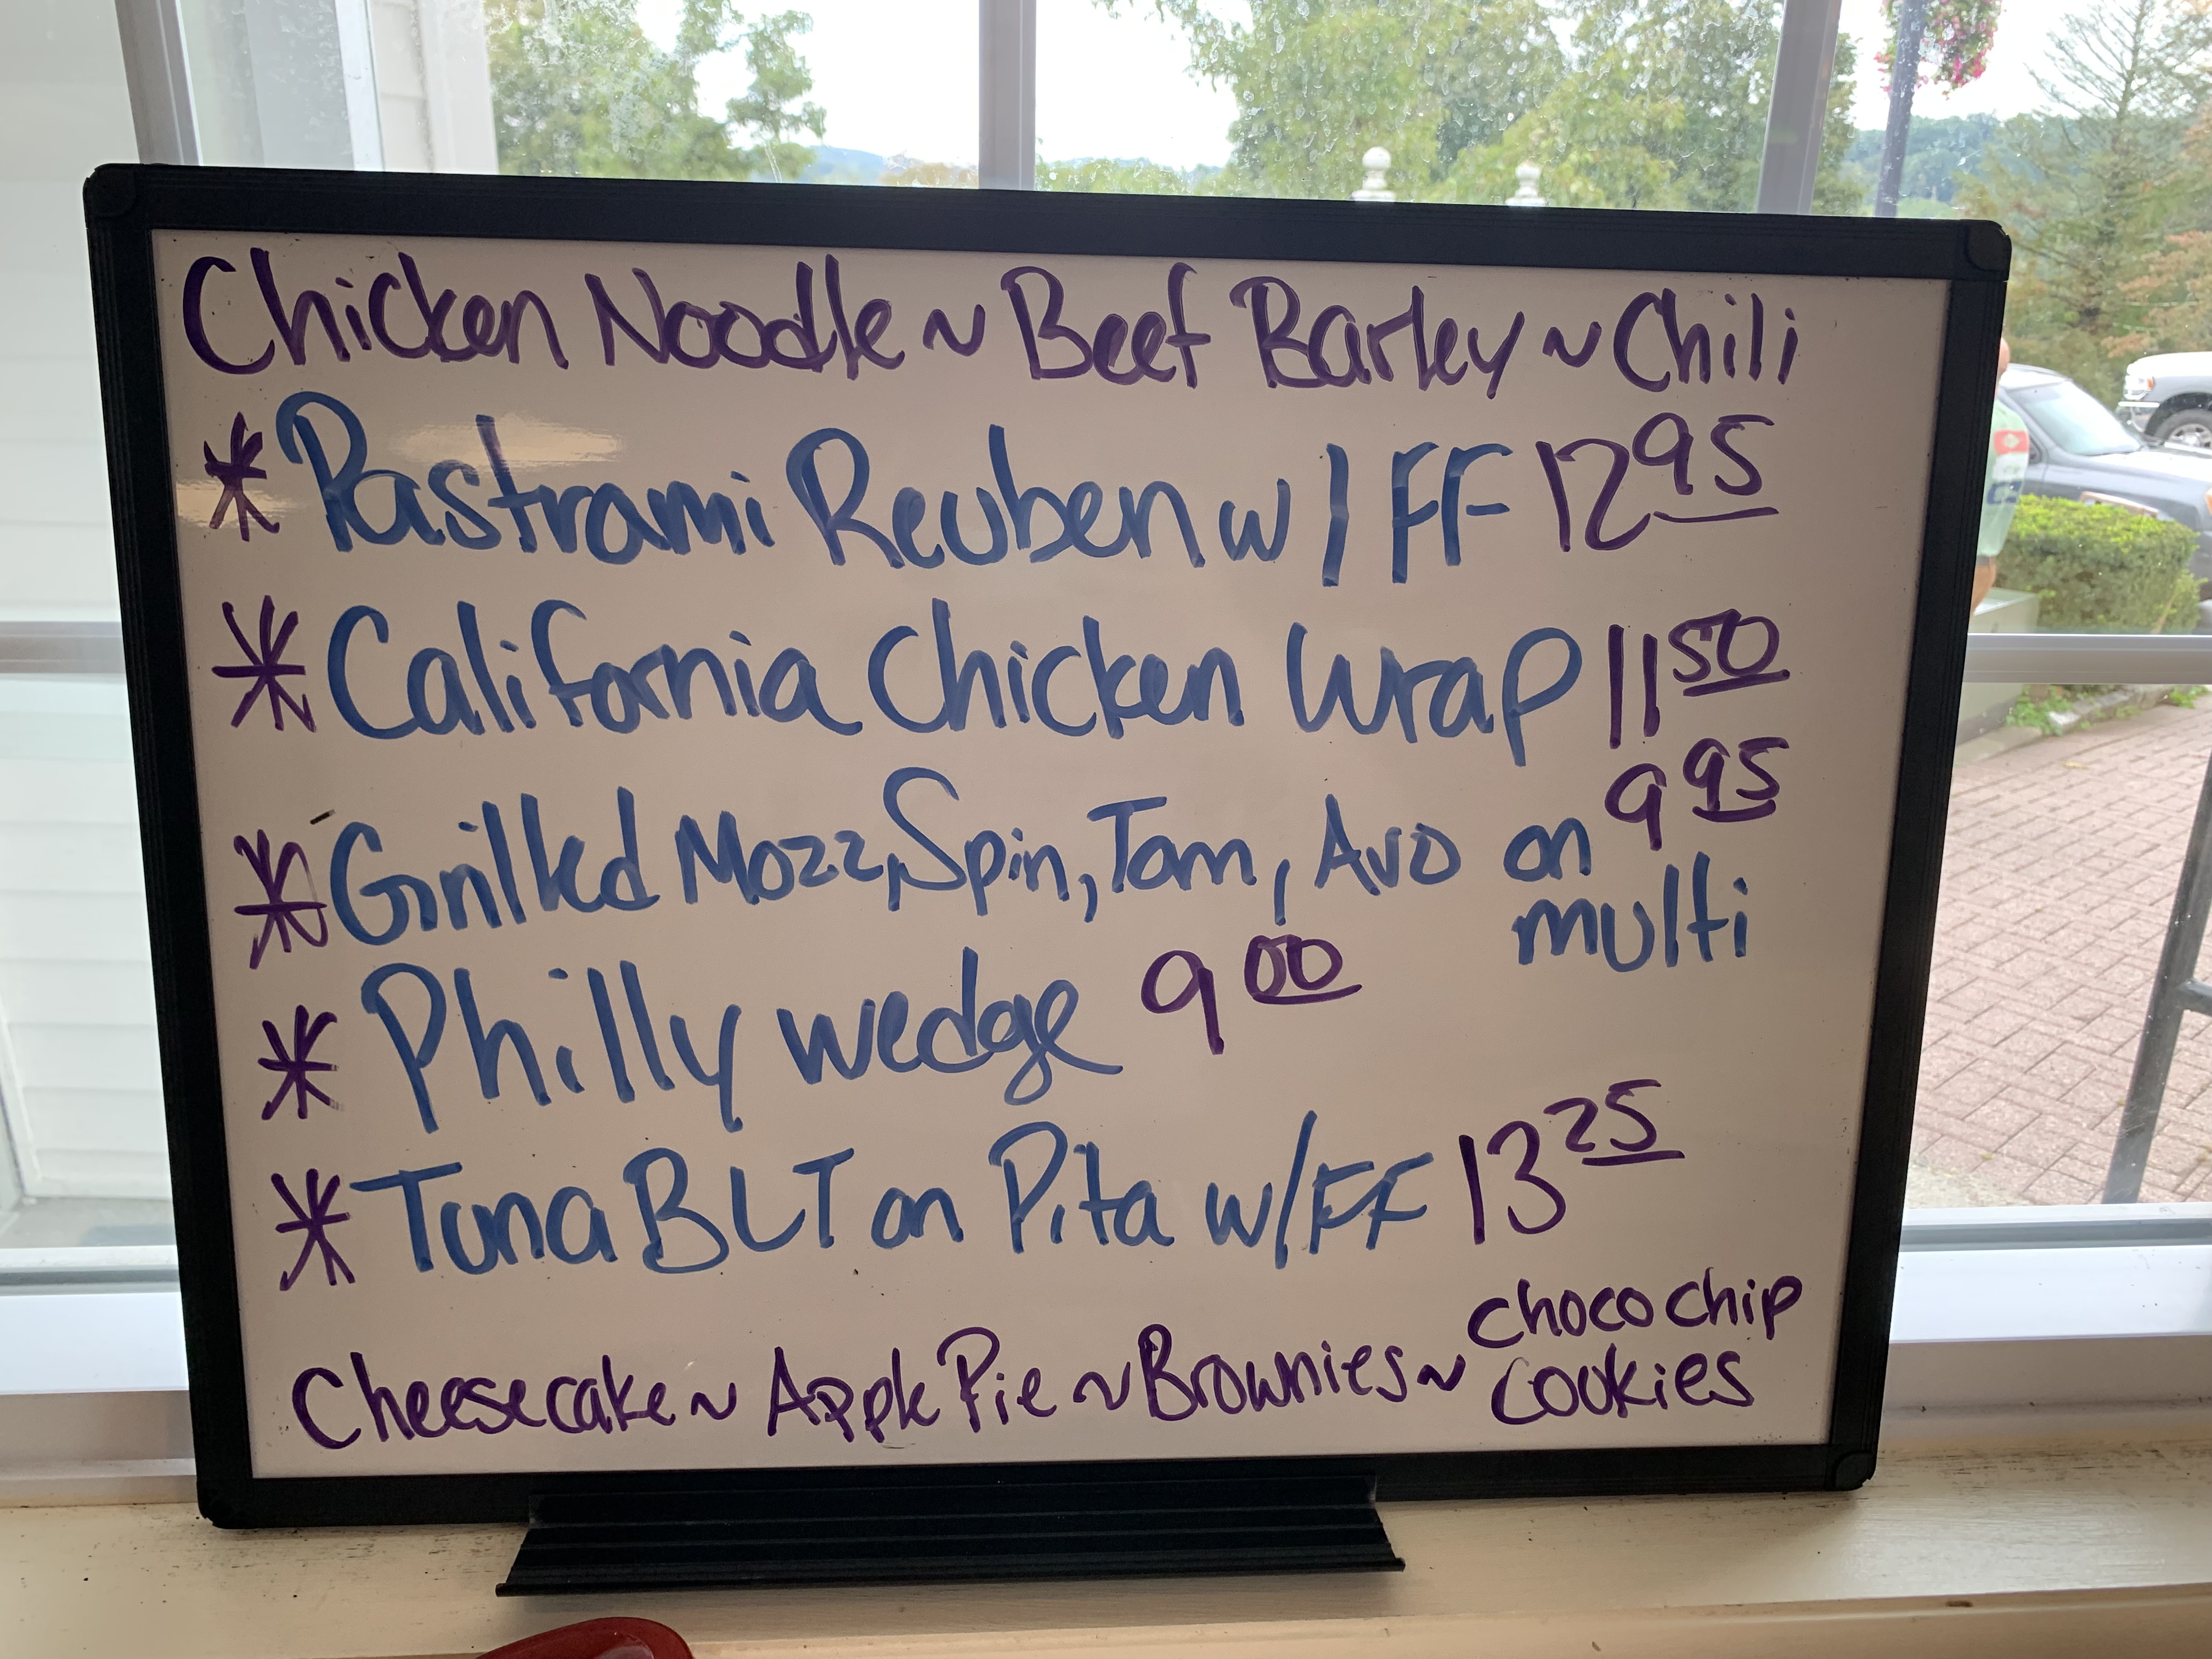 Chicken Noodle ~ Beef Barley ~ Chili
* Pastrami Reuben w/ FF 12 95
* California Chicken Wrap 11 50
* Grilled Mozz, Spin, Tom, Avo on 9 95
multi
* Philly wedge 9 00
* Tuna BLT on Pita w/FF 13 25
Cheesecake ~ Apple Pie ~ Brownies ~ choco chip
cookies